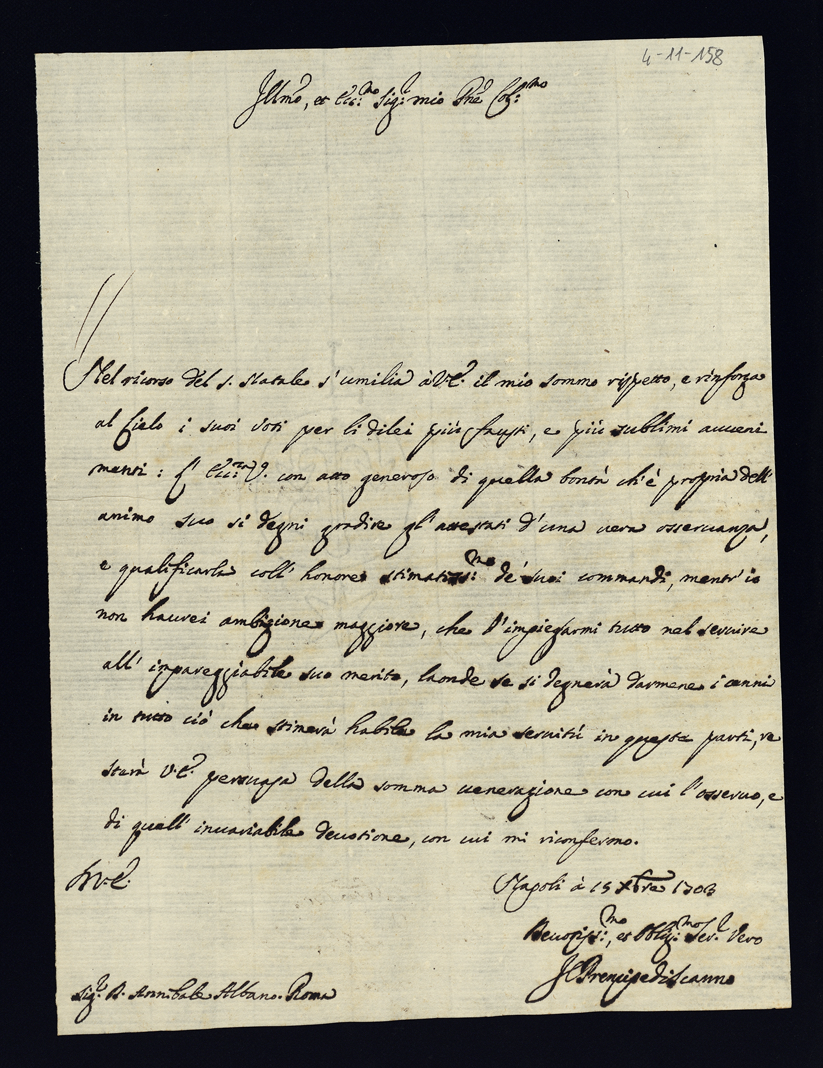 4-11-158
Illmo, et Ecc:mo Sig:r mio Pne Col:mo
Nel ricorso del S. Natale s'umilia à V.E. il mio sommo rispetto, e rinforza
al Cielo i suoi voti per li di lei più fausti, e più sublimi avveni
menti: L'Ecc:za V. con atto generoso di quella bontà ch'è propria dell'
animo suo si degni gradire gl'attestati d'una vera osservanza,
e qualificarla coll'honore stimatiss:mo de' suoi commandi, mentr'io
non haurei ambizione maggiore, che d'impiegarmi tutto nel servire
all'impareggiabile suo merito, laonde se si degnerà darmene i cenni
in tutto ciò che stimerà habile la mia servitù in queste parti, re
starà V.E. persuasa della somma venerazione con cui l'osservo, e
di quell'invariabile devotione, con cui mi riconfermo.
Di V.E.
Napoli à 15 Xbre 1703
Devotiss:mo, et Oblig:mo Ser:r Vero
Il Prencipe di Scanno
Sig:r D. Annibale Albano. Roma